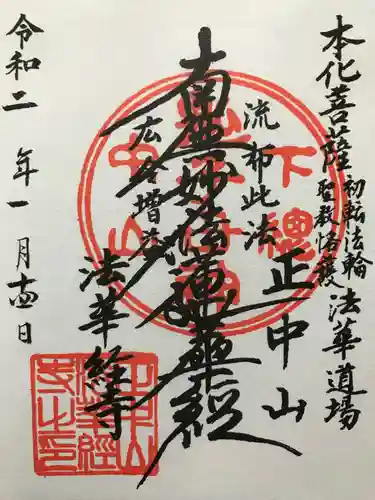 本化菩薩初転法輪法華道場
聖教恪護
正中山
流布此法
南無妙法蓮華経
広令増益
法華経寺
令和二年一月十四日
下總
中山